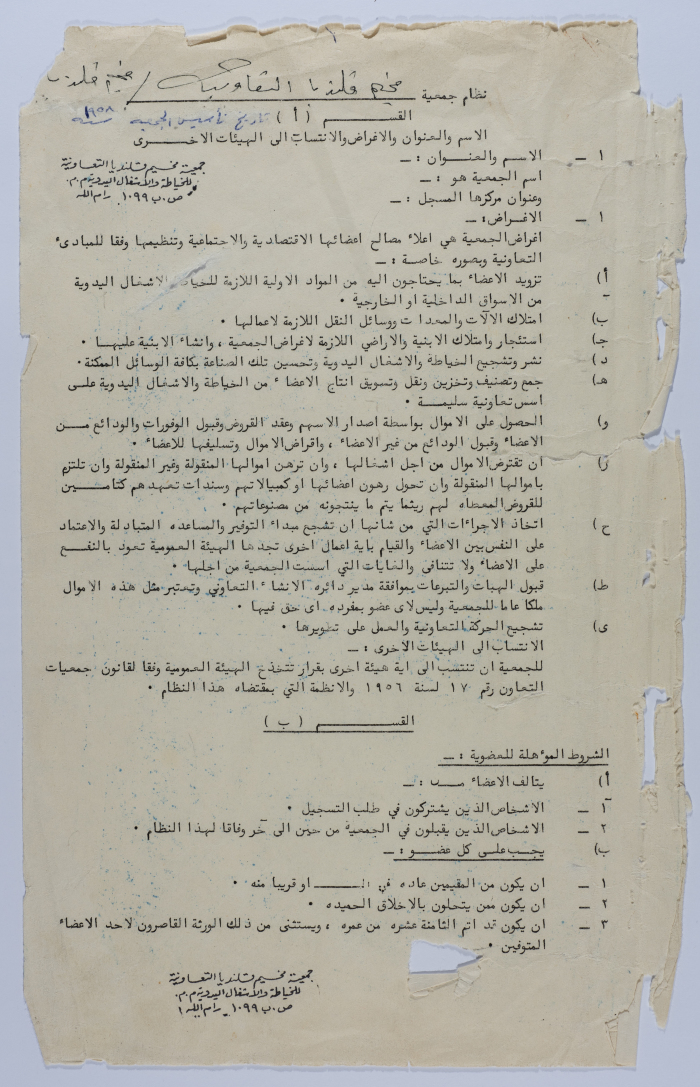 نظام جمعية مخيم قلنديا التعاونية / مخيم قلنديا
القســــم ( أ ) تاريخ تأسيس الجمعية سنة ١٩٥٨
الاسم والعنوان والاغراض والانتساب الى الهيئات الاخــرى
١ ــ الاسم والعنــوان : ــ
جمعية مخيم قلنديا التعاونية
للخياطة والأشغال اليدوية م.م.
ص.ب ١٠٩٩ رام الله
اسم الجمعية هو : ــ
وعنوان مركزها المسجل : ــ
١ ــ الاغــراض : ــ
اغراض الجمعية هي اعلاء مصالح اعضائها الاقتصادية والاجتماعية وتنظيمها وفقا للمبادىء
التعاونية وبصوره خاصة : ــ
أ) تزويد الاعضاء بما يحتاجون اليه من المواد الاولية اللازمة للخياطة والاشغال اليدوية
من الاسواق الداخلية او الخارجية ٠
ب) امتلاك الآلات والمعدات ووسائل النقل اللازمة لاعمالها ٠
جـ) استئجار وامتلاك الابنية والاراضي اللازمة لاغراض الجمعية ، وانشاء الابنية عليهـا ٠
د) نشر وتشجيع الخياطة والاشغال اليدوية وتحسين تلك الصناعة بكافة الوسائل الممكنة ٠
هـ) جمع وتصنيف وتخزين ونقل وتسويق انتاج الاعضاء من الخياطة والاشغال اليدوية علـى
اسس تعاونية سليمـة ٠
و) الحصول على الاموال بواسطة اصدار الاسهم وعقد القروض وقبول الوفورات والودائع مــن
الاعضاء وقبول الودائع من غير الاعضاء ، واقراض الاموال وتسليفها للاعضاء ٠
ز) ان تقترض الاموال من اجل اشغالهـا ، وان ترهن اموالها المنقولة وغير المنقولة وان تلتزم
باموالها المنقولة وان تحول رهون اعضائها او كمبيالاتهم وسندات تعهدهم كتاميــن
للقروض المعطاه لهم ريثما يتم ما ينتجونه من مصنوعاتهم ٠
ح) اتخاذ الاجراءات التي من شانها ان تشجع مبداء التوفير والمساعده المتبادلة والاعتماد
على النفس بين الاعضاء والقيام باية اعمال اخرى تجدها الهيئة العمومية تعود بالنفـع
على الاعضاء ولا تتنافى والغايات التي اسست الجمعية من اجلها ٠
ط) قبول الهبات والتبرعات بموافقة مدير دائره الانشاء التعاوني وتعتبر مثل هذه الاموال
ملكا عاما للجمعية وليس لاى عضو بمفرده اى حق فيها ٠
ى) تشجيع الحركة التعاونية والعمل على تطويرها ٠
الانتساب الى الهيئات الاخرى : ــ
للجمعية ان تنتسب الى اية هيئة اخرى بقرار تتخذه الهيئة العمومية وفقا لقانون جمعيات
التعاون رقم ١٧ لسنة ١٩٥٦ والانظمة التي بمقتضاه هذا النظام ٠
القســــم ( ب )
الشروط المؤهلة للعضوية : ــ
أ) يتالف الاعضاء مــن : ــ
١ ــ الاشخاص الذين يشتركون في طلب التسجيل ٠
٢ ــ الاشخاص الذين يقبلون في الجمعية من حين الى آخر وفاقا لهذا النظام ٠
ب) يجب علـى كل عضــو : ــ
١ ــ ان يكون من المقيمين عاده في او قريبا منه ٠
٢ ــ ان يكون ممن يتحلون بالاخلاق الحميده ٠
٣ ــ ان يكون قد اتم الثامنة عشره من عمره ، ويستثنى من ذلك الورثة القاصرون لاحد الاعضاء
المتوفين ٠
جمعية مخيم قلنديا التعاونية
للخياطة والأشغال اليدوية م.م.
ص.ب ١٠٩٩ ـ رام الله